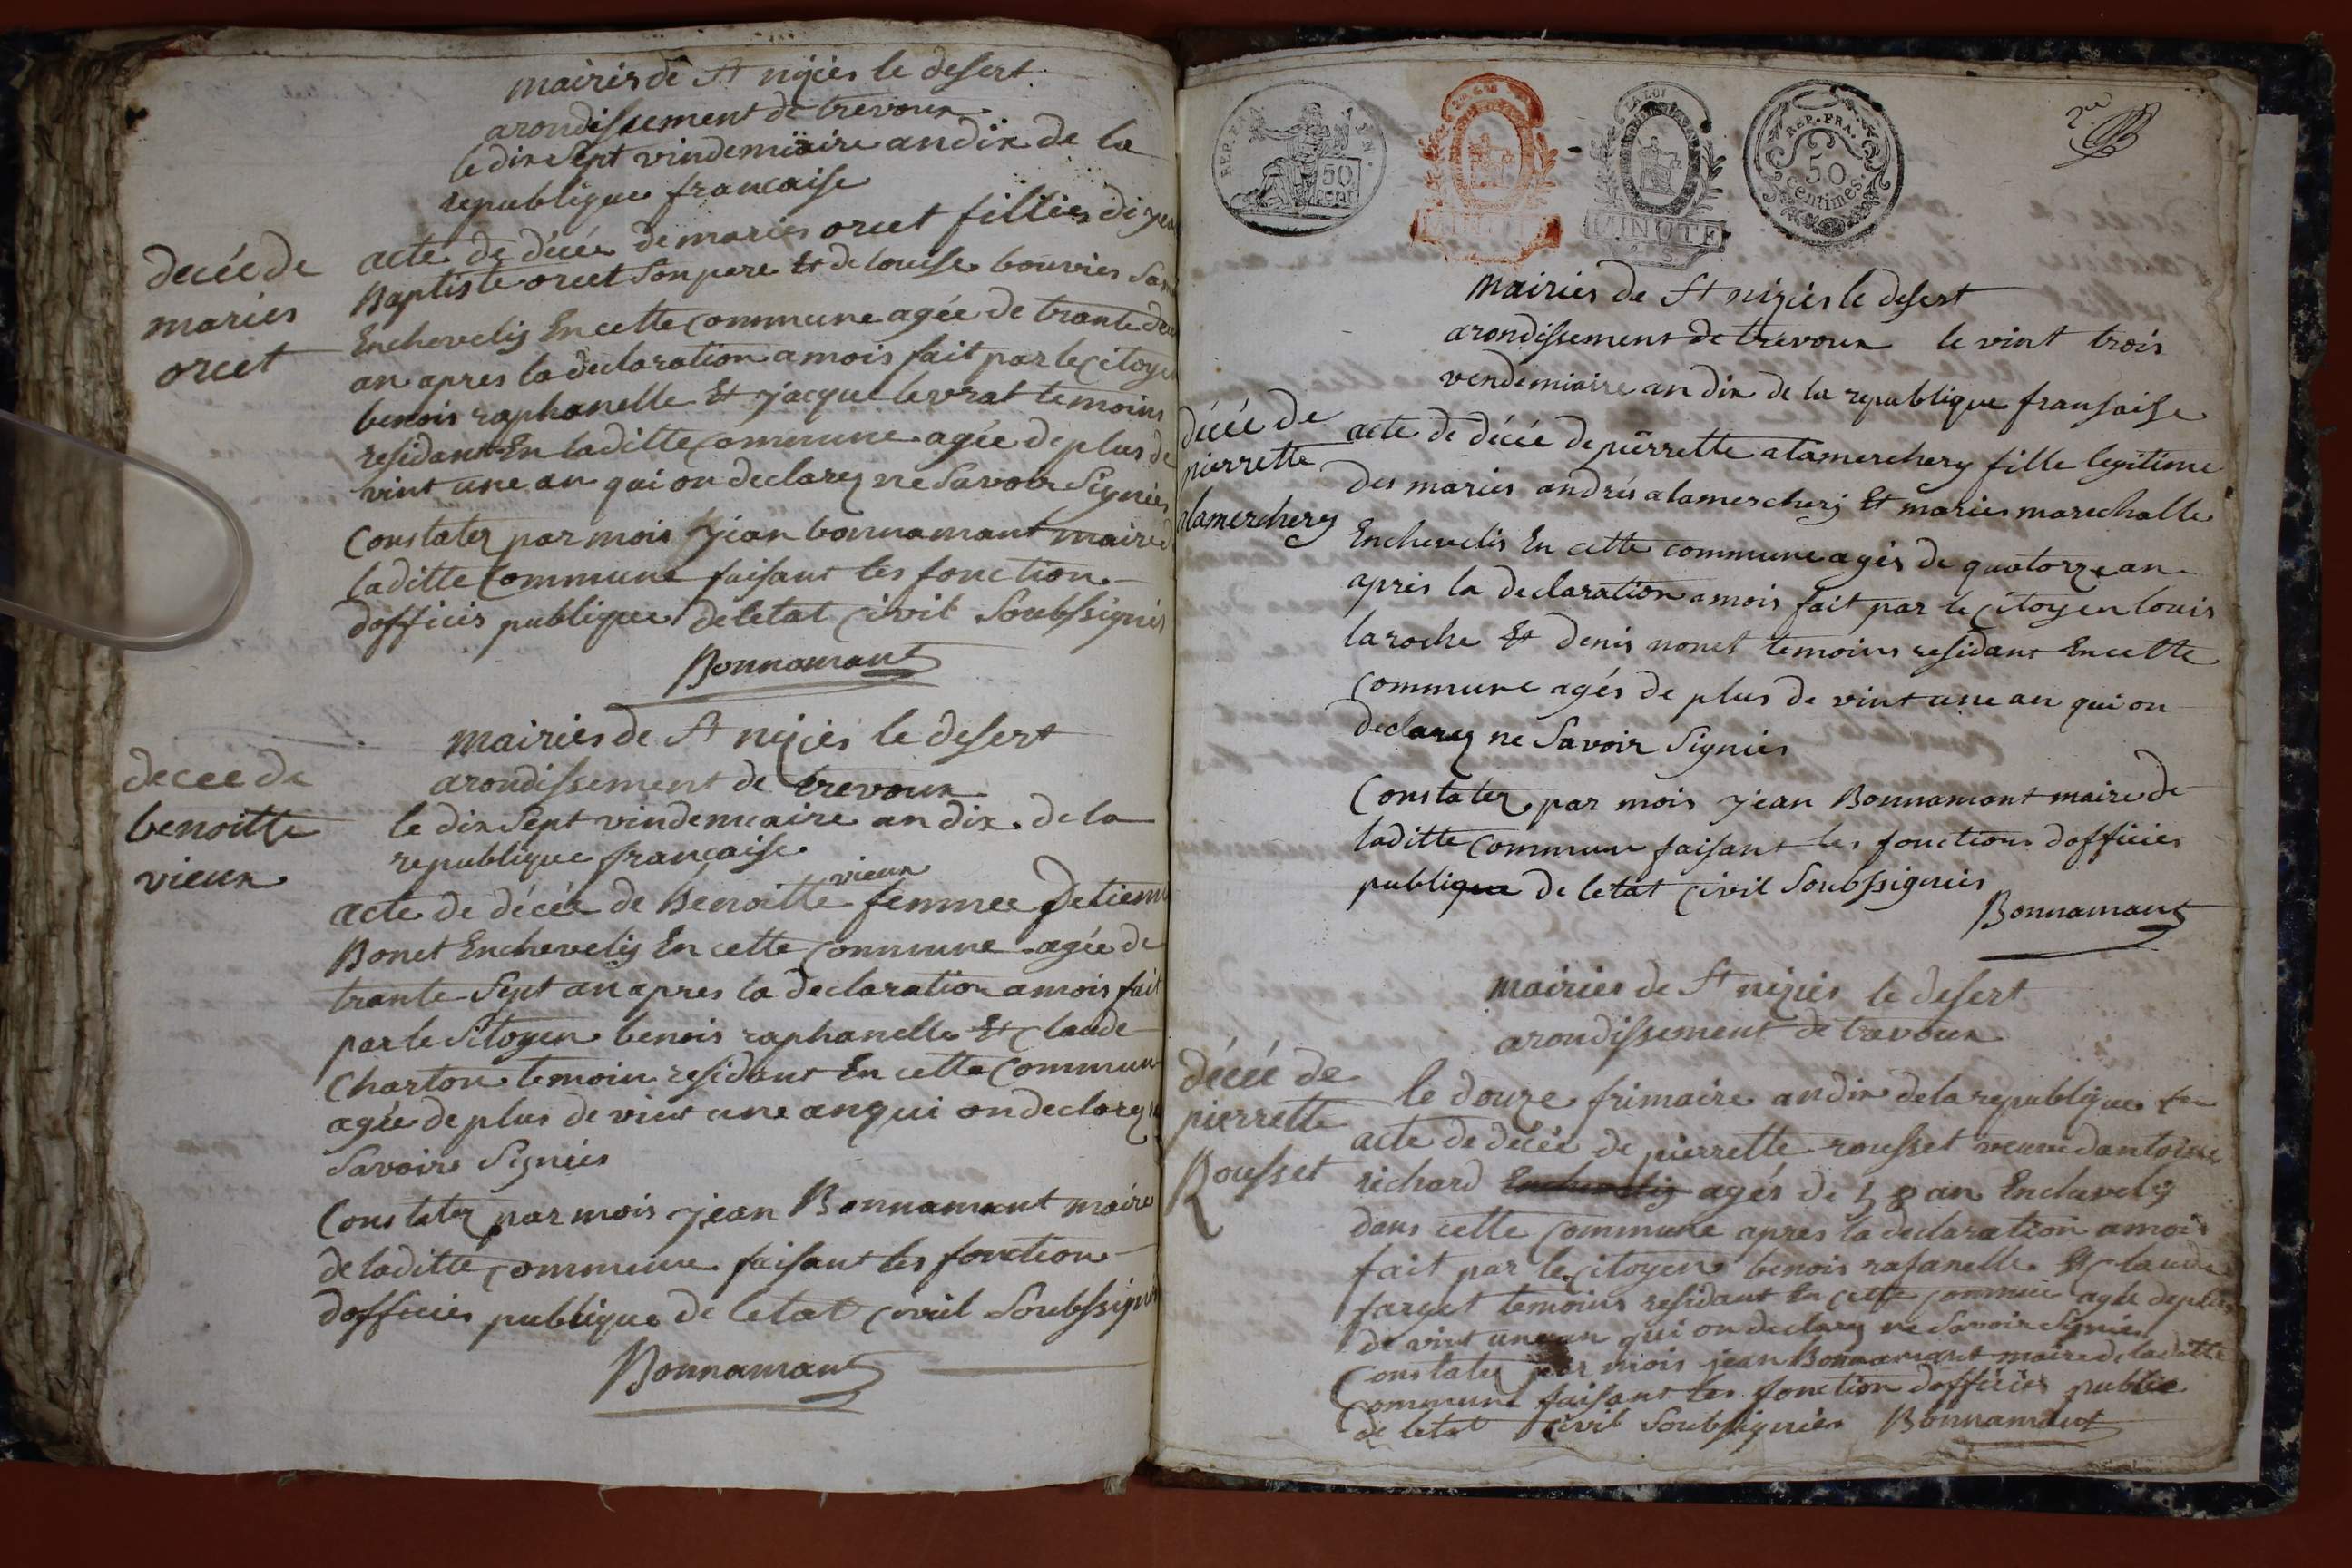 mairies de St nizies le desert
arondissement de trevoux
le dix sept vindemiaire an dix de la
republique francaise
decée de
maries
orcet
acte de décée de maries orcet fillies de jea
Baptiste orcet son pere Et de louise bouvies
Enchevelis En cette commune agée de trante deu
an apres la declaration a mois fait par le citoye
benois raphanelle Et jacque levrat temoins
residant En laditte commune agée de plus de
vint une an qui on declarez ne savoir signies
Constatez par mois jean bonnamant maire d
laditte commune faisant les fonction
dofficies publique de letat civil soubssignies
Bonnamant
mairies de St nizies le desert
arondissement de trevoux
decee de
benoitte
vieux
le dix sept vindemiaire an dix de la
republique francaise
vieux
acte de décée de Benoitte femmee detienne
Bonet Enchevelis En cette commune agée de
trante sept an apres la declaration a mois fait
par le sitoyen benois raphanelle Et claude
Charton temoin residant En cette commun
agée de plus de vint une an qui on declarez
savoire signies
Constatez par mois jean Bonnamant maire
de laditte commune faisant les fonction
dofficies publique de letat civil soubssignies
Bonnamant
REP. FRA
50
cent
MINUTE
LA LOI
MINUTE
REP. FRA.
50
centimes.
mairies de St nizies le desert
arondissement de trevoux le vint trois
vendemiaire an dix de la republique fransaise
décée de
pierrette
alamerchery
acte de décée de pierrette alamerchery fille legitime
des maries andrés alamerchery Et maries marechalle
Enchevelis En cette commune agés de quatorze an
apres la declaration a mois fait par le citoyen louis
laroche Et denis nonet temoins residant En cette
commune agés de plus de vint une an qui on
declarez ne savoir signies
Constatez par mois jean Bonnamant maire de
laditte commune faisant les fonctions dofficies
publique de letat civil soubssignies
Bonnamant
mairies de St nizies le desert
arondissement de trevoux
décée de
pierrette
Rousset
le douze frimaire an dix de la republique fra
acte de décée de pierrette rousset veuve dantoine
richard Enchevelis agés de 58 an Enchevelis
dans cette commune apres la declaration a mois
fait par le citoyen benois rafanelle Et claude
farget temoins residant En cette commune agée de plus
de vint une an qui on declarez ne savoir signies
Constatez par mois jean Bonnamant maire de laditte
commune faisant les fonction dofficies public
de letat civil soubsignies Bonnamant